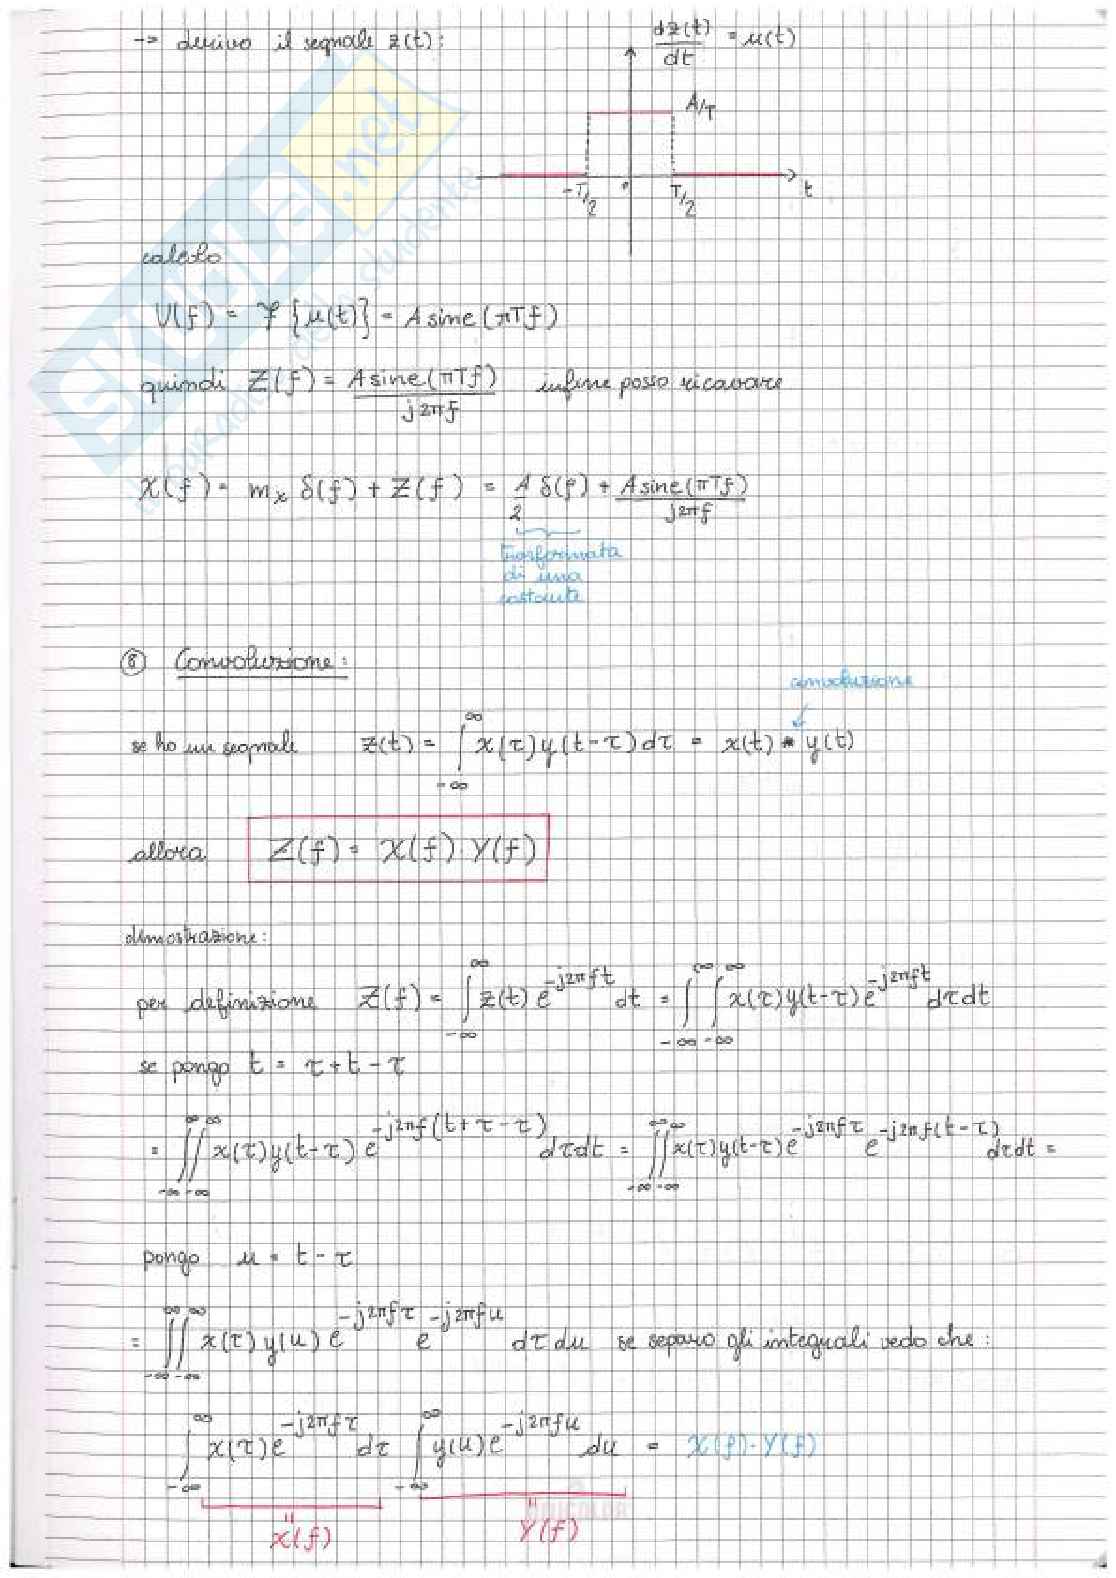 → derivo il segnale z(t):
dz(t)/dt = u(t)
A/T
-T/2 0 T/2 t
calcolo
U(f) = ℱ{u(t)} = A sinc(πTf)
quindi Z(f) = A sinc(πTf)/j2πf infine posso ricavare
X(f) = mx δ(f) + Z(f) = A/2 δ(f) + A sinc(πTf)/j2πf
trasformata
di una
costante
⑧ Convoluzione:
convoluzione
se ho un segnale z(t) = ∫_{-∞}^{∞} x(τ)y(t-τ)dτ = x(t) * y(t)
allora Z(f) = X(f)·Y(f)
dimostrazione:
per definizione Z(f) = ∫_{-∞}^{∞} z(t) e^{-j2πft} dt = ∫_{-∞}^{∞} ∫_{-∞}^{∞} x(τ)y(t-τ)e^{-j2πft} dτdt
se pongo t = τ+t-τ
= ∫_{-∞}^{∞}∫_{-∞}^{∞} x(τ)y(t-τ) e^{-j2πf(t+τ-τ)} dτdt = ∫_{-∞}^{∞}∫_{-∞}^{∞} x(τ)y(t-τ)e^{-j2πfτ} e^{-j2πf(t-τ)} dτdt =
pongo u = t-τ
= ∫_{-∞}^{∞}∫_{-∞}^{∞} x(τ)y(u) e^{-j2πfτ} e^{-j2πfu} dτ du se separo gli integrali vedo che:
∫_{-∞}^{∞} x(τ)e^{-j2πfτ} dτ ∫_{-∞}^{∞} y(u)e^{-j2πfu} du = X(f)·Y(f)
" "
X(f) Y(f)
SKUOLA.net